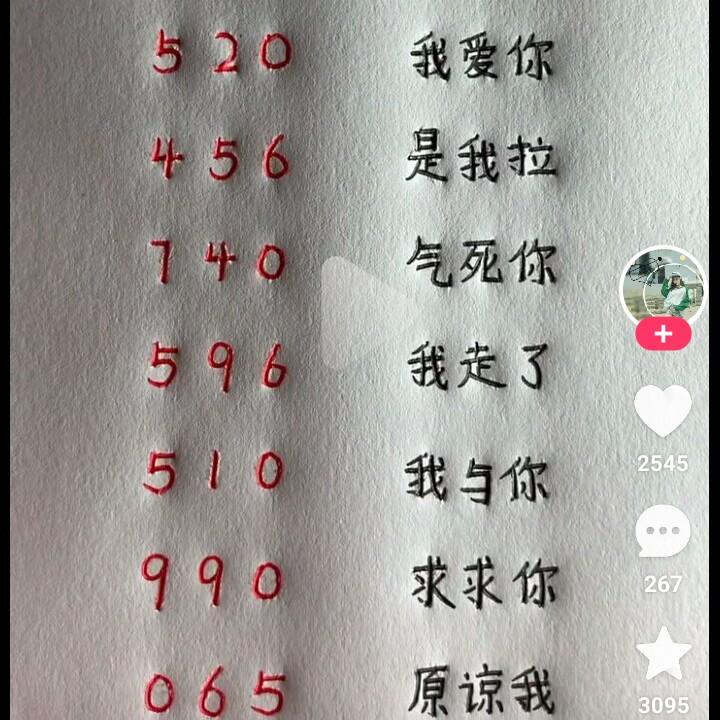 520 我爱你
456 是我拉
740 气死你
596 我走了
510 我与你
990 求求你
065 原谅我
2545
267
3095